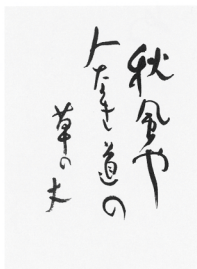 秋風や
人なき道の
草の丈